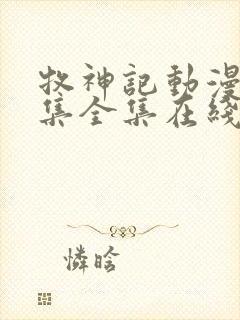 牧神記動漫
集全集在綫
憐晗